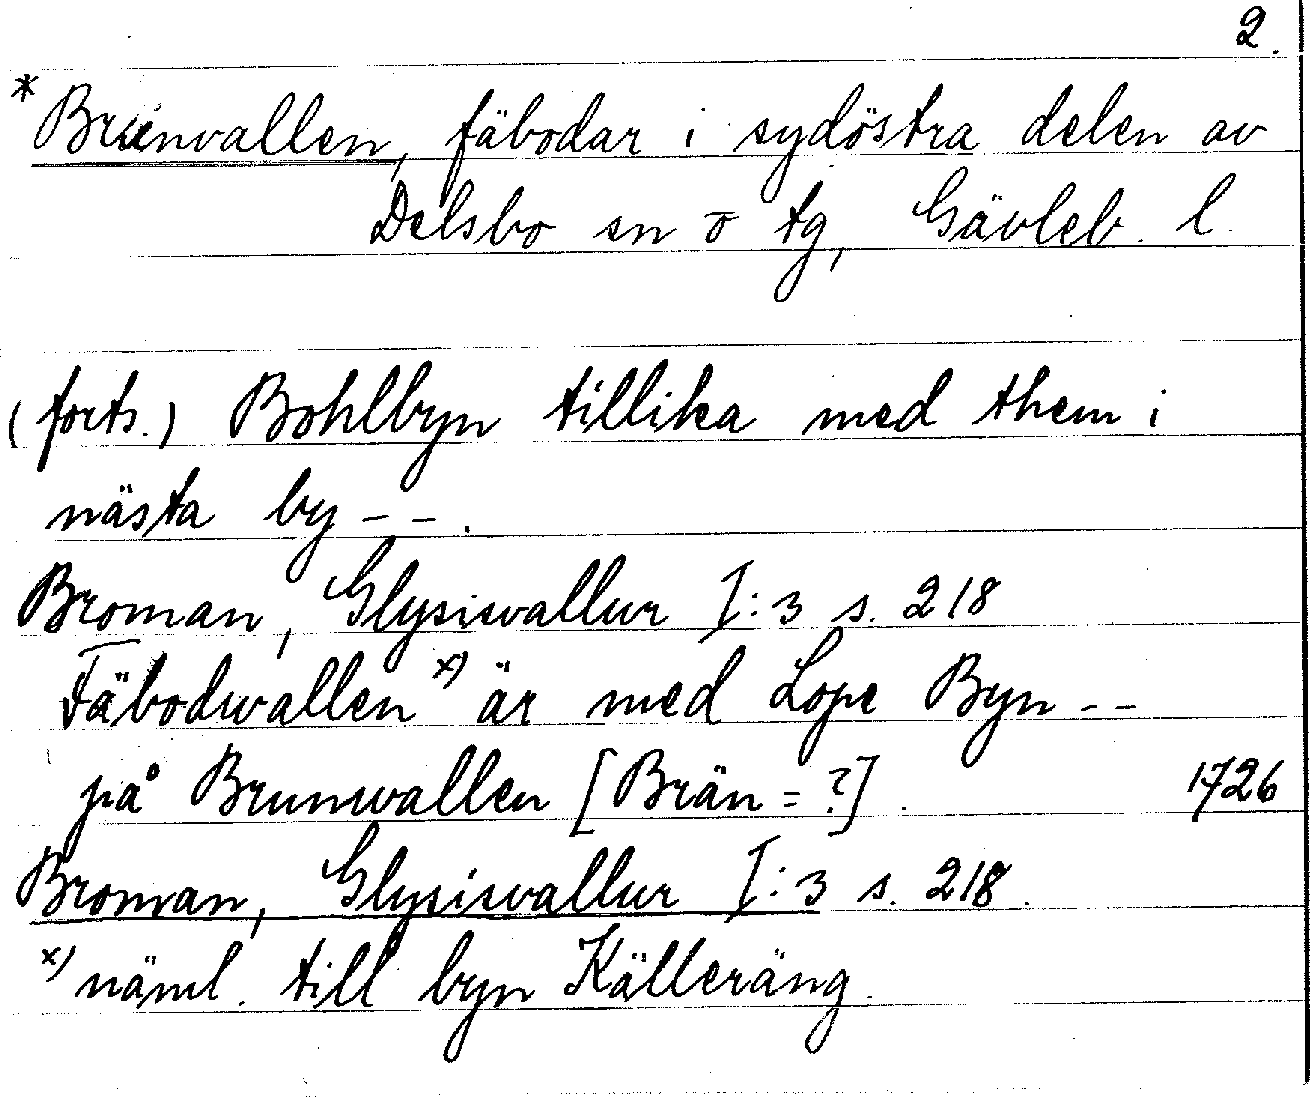 2.
* Brunvallen, fäbodar i sydöstra delen av
Delsbo sn o tg, Gävleb. l.
(forts.) Bohlbyn tillika med them i
nästa by - - .
Broman, Glysisvallur I:3 s. 218
Fäbodwallen x) är med Lope Byn - -
på Brunwallen [Brän = ?] . 1726
Broman, Glysisvallur I:3 s. 218.
x) näml. till byn Källeräng.